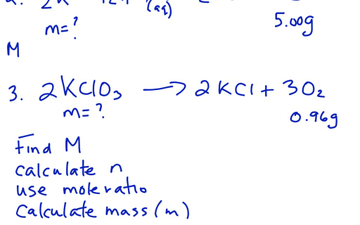 (aq)
m=?
5.00g
M
3. 2KClO₃ → 2KCl + 3O₂
m=?
0.96g
Find M
calculate n
use mole ratio
Calculate mass (m)